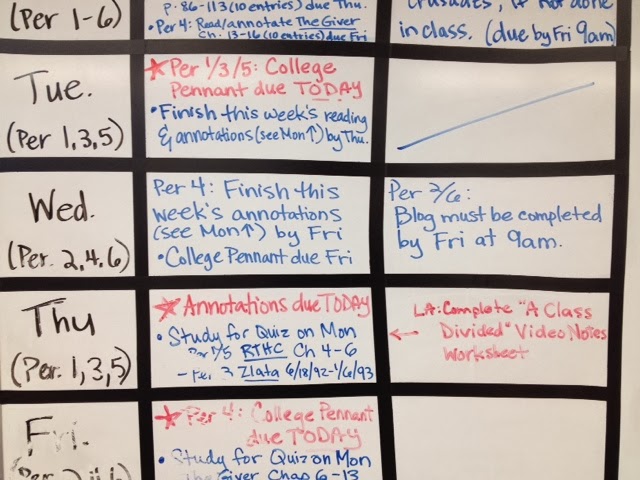 (Per 1-6)
P. 86-113 (10 entries) due Thu.
• Per 4: Read/annotate The Giver
Ch. 13-16 (10 entries) due Fri
Crusades, if not done
in class. (due by Fri 9am)
Tue.
(Per 1,3,5)
★ Per 1/3/5: College
Pennant due TODAY
• Finish this week's reading
& annotations (see Mon↑) by Thu.
Wed.
(Per. 2,4,6)
Per 4: Finish this
week's annotations
(see Mon↑) by Fri
• College Pennant due Fri
Per 2/6:
Blog must be completed
by Fri at 9am.
Thu
(Per. 1,3,5)
★ Annotations due TODAY
• Study for Quiz on Mon
Per 1/5 RTHC Ch 4-6
- Per 3 Zlata 6/18/92-1/6/93
← LA: Complete "A Class
Divided" Video Notes
Worksheet
Fri.
(Per 2,4,6)
★ Per 4: College Pennant
due TODAY
• Study for Quiz on Mon
Giver Chap 6-13